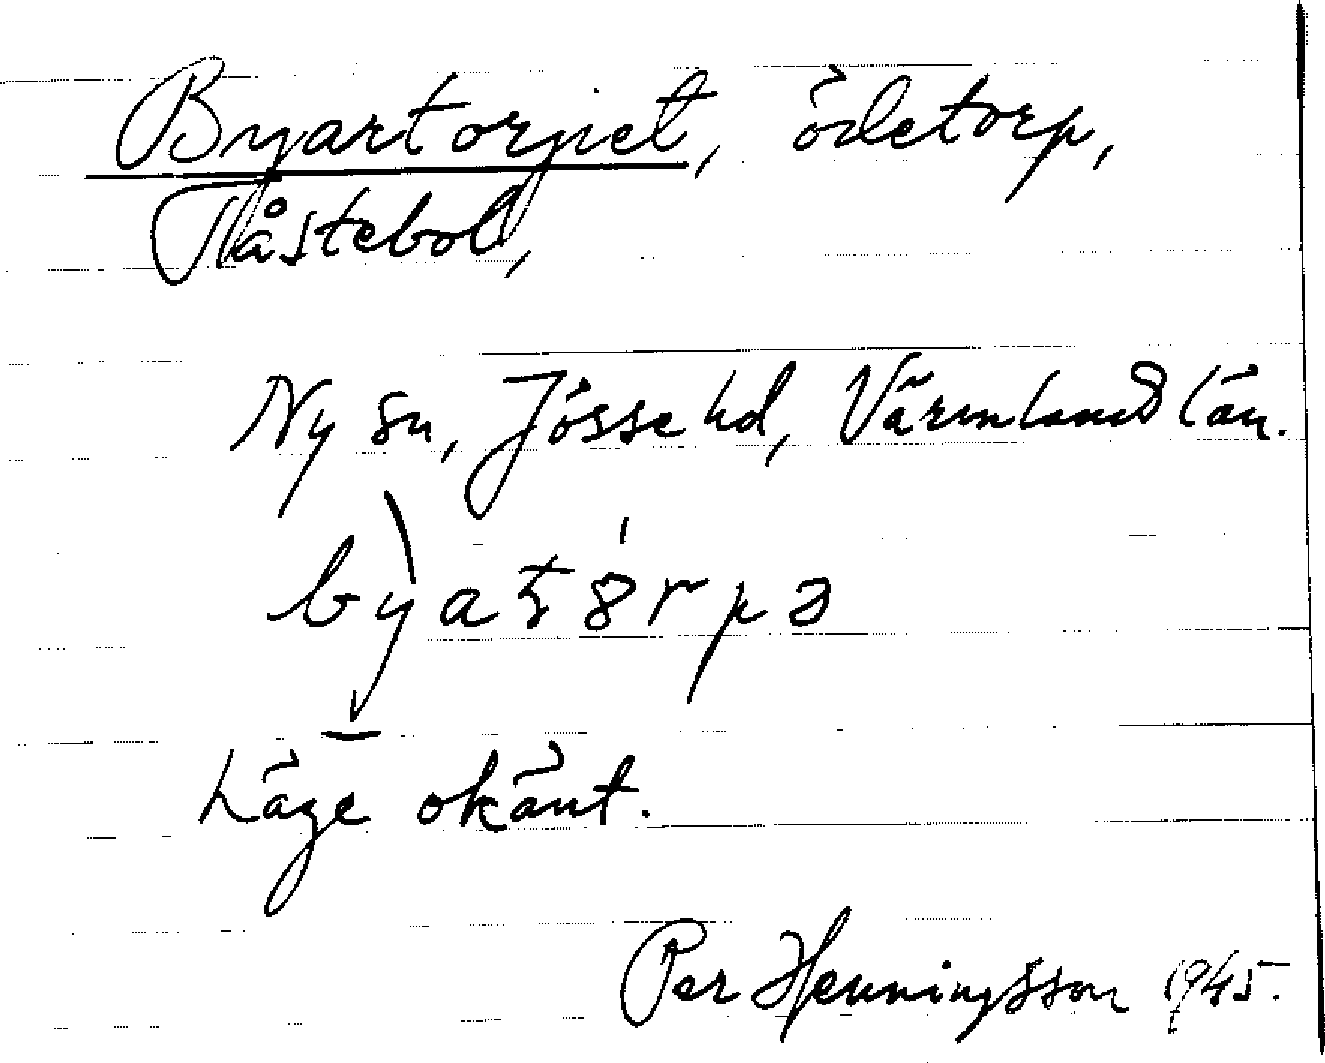 Byartorpet, ödetorp,
Tåstebol,
Ny sn, Jösse hd, Värmland län.
byatörpə
Läge okänt.
Per Henningsson 1945.